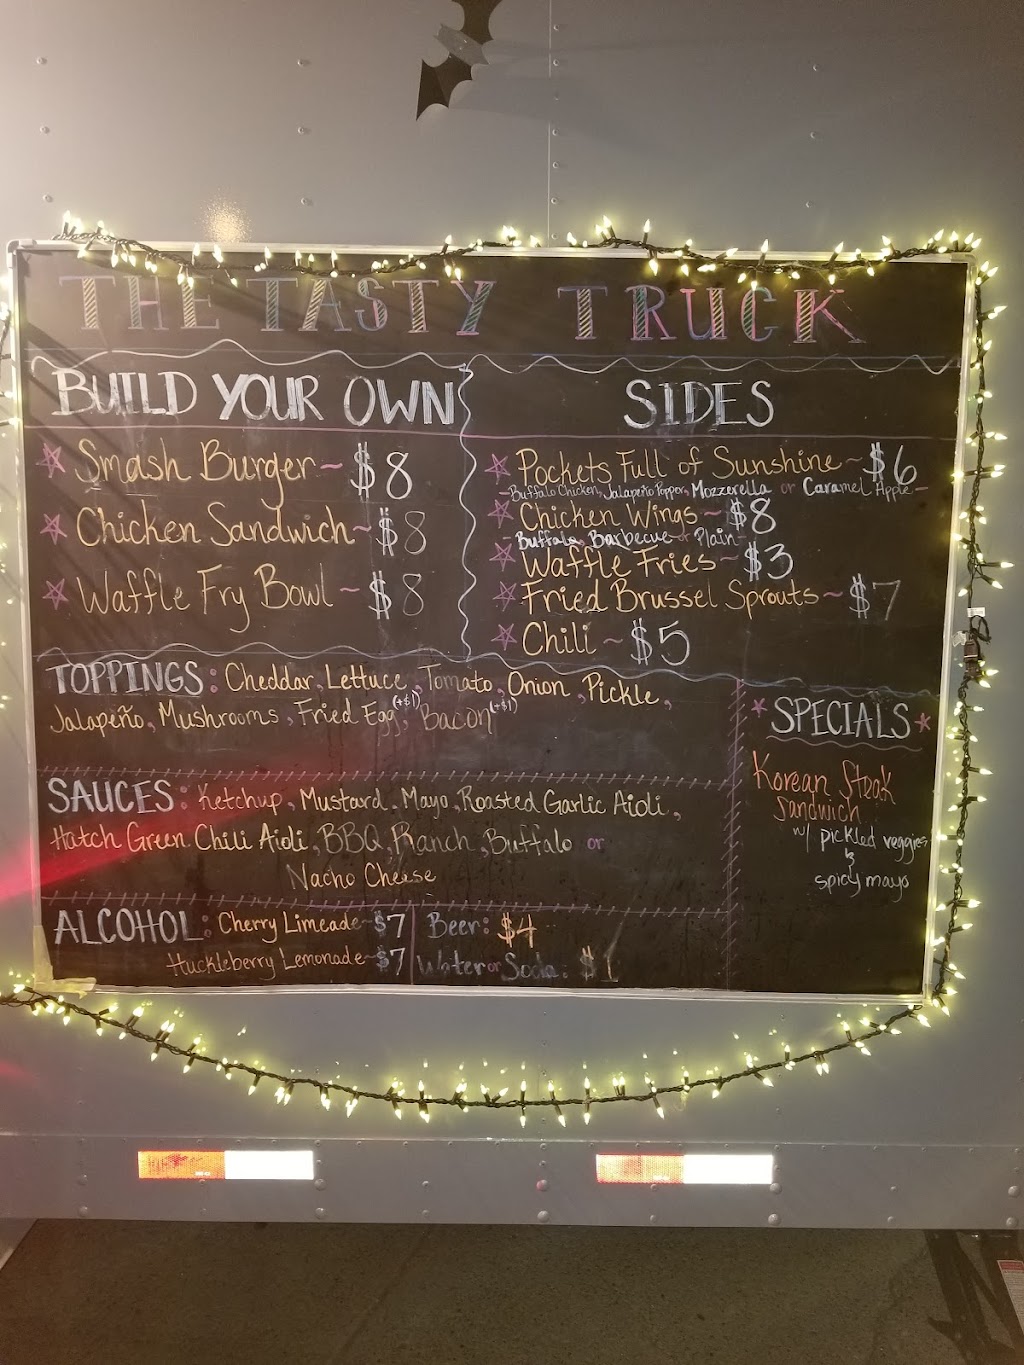 THE TASTY TRUCK
BUILD YOUR OWN
Smash Burger ~ $8
Chicken Sandwich ~ $8
Waffle Fry Bowl ~ $8
SIDES
Pockets Full of Sunshine ~ $6
- Buffalo Chicken, Jalapeño Popper, Mozzerella or Caramel Apple -
Chicken Wings ~ $8
- Buffalo, Barbecue or Plain -
Waffle Fries ~ $3
Fried Brussel Sprouts ~ $7
Chili ~ $5
TOPPINGS: Cheddar, Lettuce, Tomato, Onion, Pickle,
Jalapeño, Mushrooms, Fried Egg (+$1), Bacon (+$1)
SAUCES: Ketchup, Mustard, Mayo, Roasted Garlic Aioli,
Hatch Green Chili Aioli, BBQ, Ranch, Buffalo or
Nacho Cheese
ALCOHOL: Cherry Limeade ~ $7
Huckleberry Lemonade ~ $7
Beer: $4
Water or Soda: $1
SPECIALS
Korean Steak
Sandwich
w/ pickled veggies
&
spicy mayo